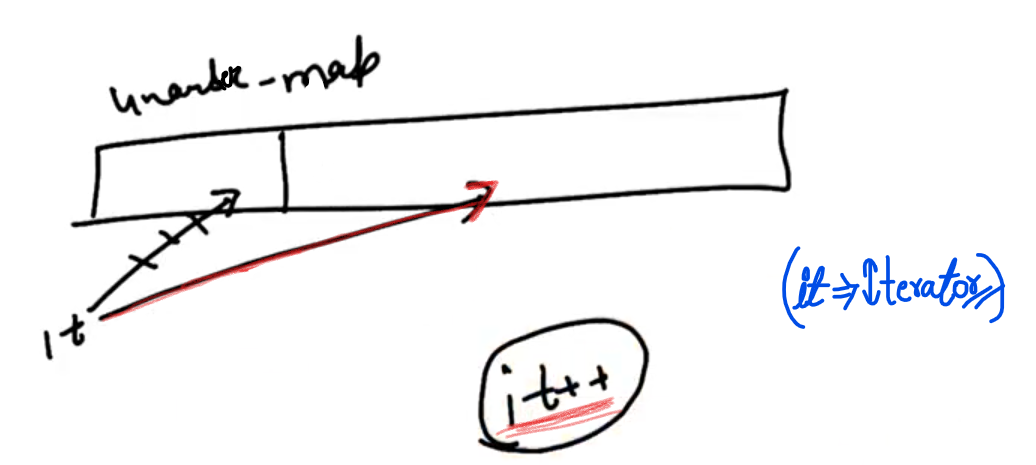 unorder-map
it
(it ⇒ Iterator)
it++